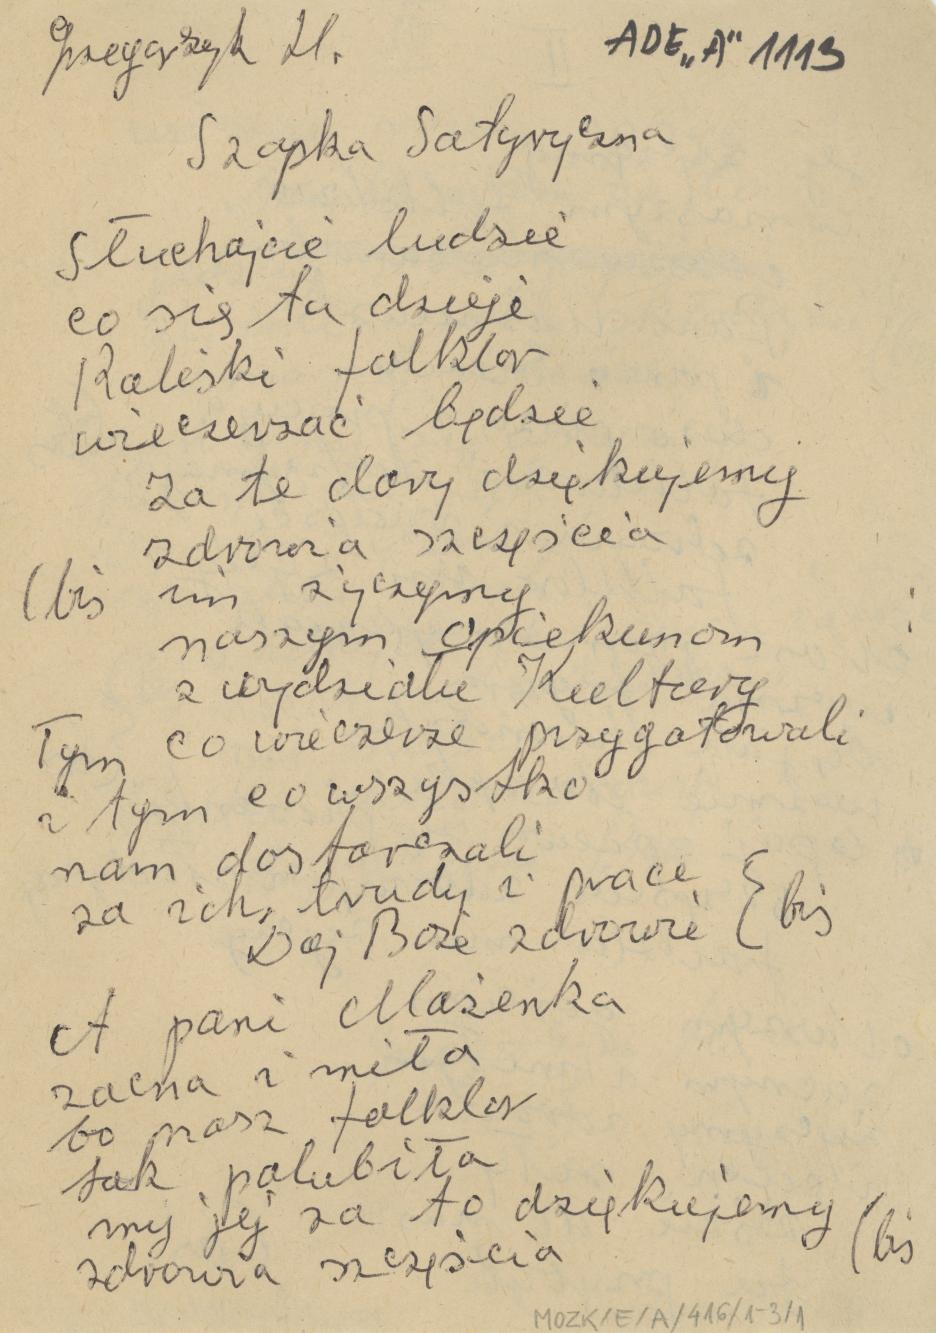 Grzegorzyk H.
ADE „A" 1113
Szopka Satyryczna
Słuchajcie ludzie
co się tu dzieje
Kaliski folklor
wieczerzać będzie
Za te dary dziękujemy
zdrowia szczęścia
(bis im życzymy
naszym opiekunom
z wydziału Kultury
Tym co wieczerze przygotowali
i tym co wszystko
nam dostarczali
za ich, trudy i prace
Daj Boże zdrowie { bis
A pani Mażenka
zacna i miła
bo nasz folklor
tak polubiła
my jej za to dziękujemy (bis
zdrowia szczęścia
MOZK/E/A/416/1-3/1